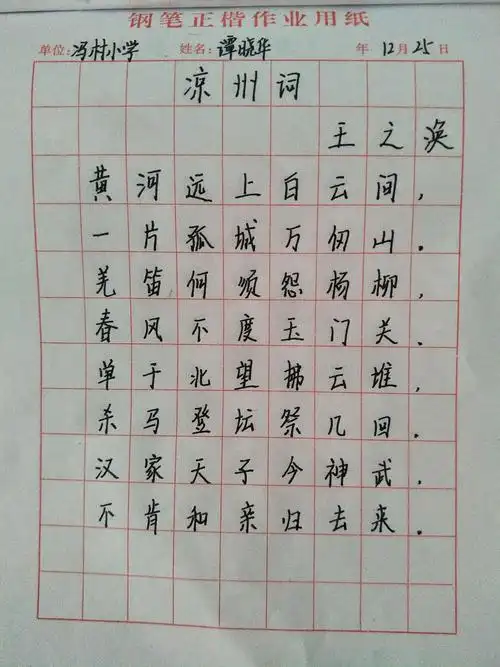 钢笔正楷作业用纸
单位:冯村小学 姓名:谭晓华 年12月25日
凉州词
王之涣
黄河远上白云间,
一片孤城万仞山.
羌笛何须怨杨柳,
春风不度玉门关.
单于北望拂云堆,
杀马登坛祭几回.
汉家天子今神武,
不肯和亲归去来.